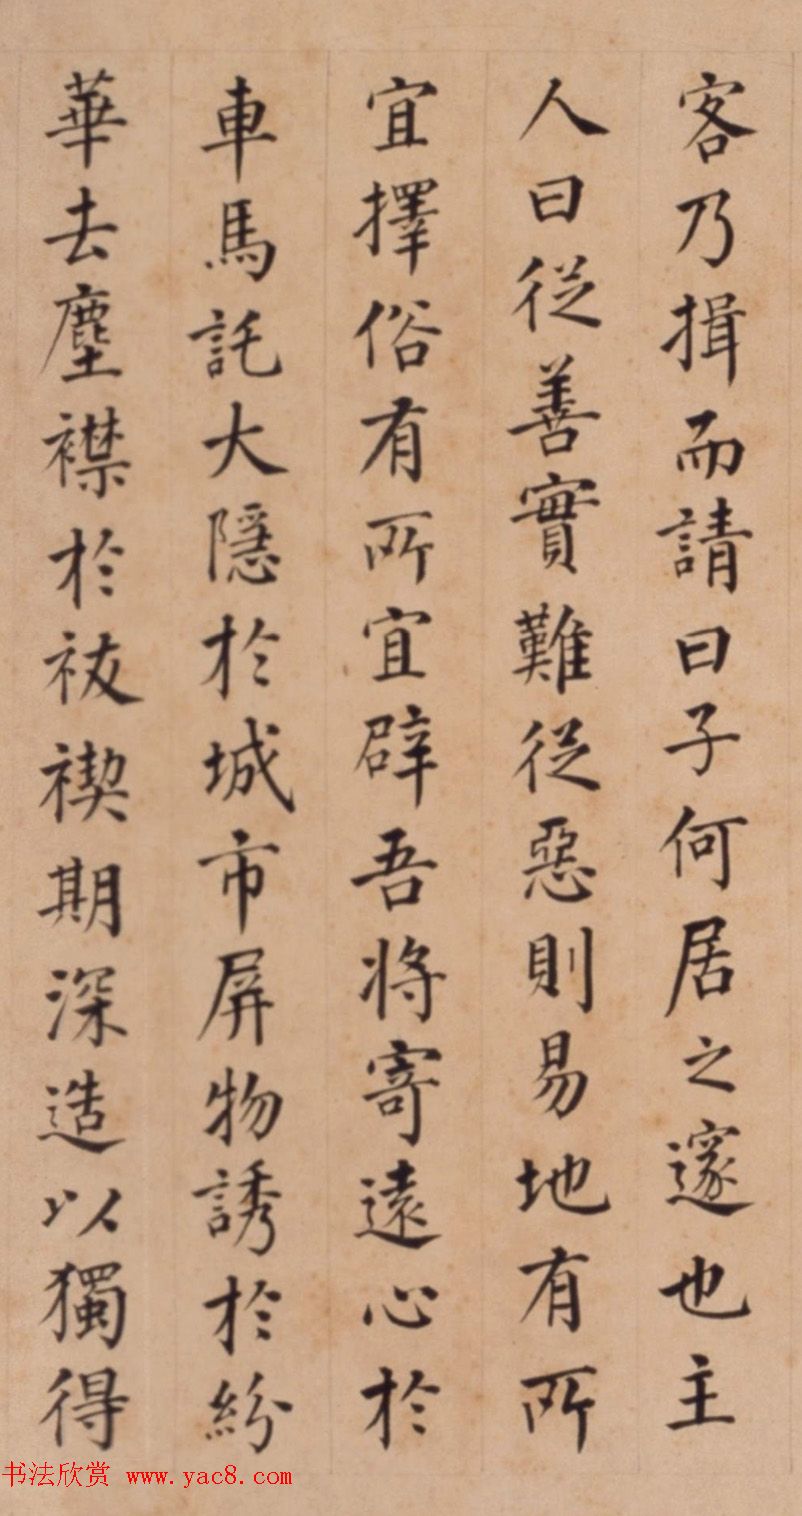 客乃揖而請曰子何居之邃也主
人曰從善實難從惡則易地有所
宜擇俗有所宜辟吾將寄遠心於
車馬託大隱於城市屏物誘於紛
華去塵襟於祓禊期深造以獨得
书法欣赏 www.yac8.com